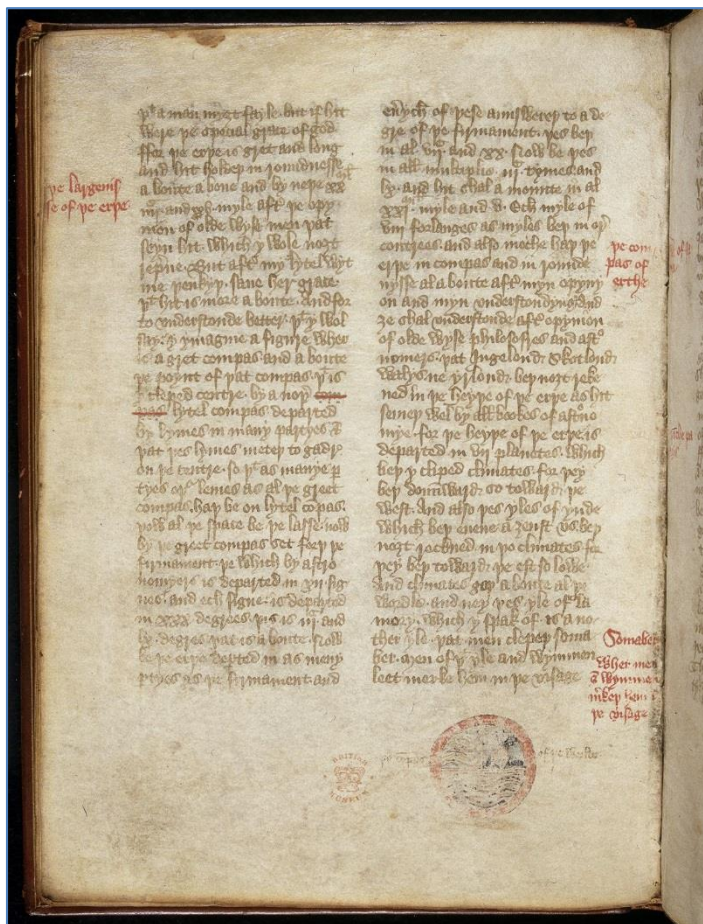 þt a man myȝt fayle. but if hit
were þe special grace of god
ffor þe erþe is gret and long
and hit holdeþ in roundnesse
a boute a bove and by neþe xx
and myle aftr þe opy
nion of olde wyse men þat
seyn hit. which y wole noȝt
repreue. But aftr my lytel wyt
me þenkyþ. saue her grace
þt hit is more a boute. and for
to vnderstonde better. þt y wol
say. y ymagine a figure wher
is a gret compas and a boute
þe poynt of þat compas. þt is
cleped centre. by a noþr com
pas lytel compas departed
by lynes in many partyes &
þat þes lynes metep to gadr
on þe centre. so þt as manye
tyes as al þe greet
compas. haþ be on lytel copas.
þow al þe space be þe lasse. now
by þe greet compas set feeþ þe
firmament. þe which by astro
nomyers is departed in xii. sig
nes. and ech signe. is departed
in xxx degrees. þis is iij. and
lx. degres þat is a boute. Now
be þe erþe deꝑted in as meny
ꝑtyes as þe firmament. and
þe largenis
se of þe erþe
euych of þese answereþ to a de
gre of þe firmament. þes beþ
in al vij and xx. Now be þes
in all multiplie. iij. tymes. and
lx. and hit shal a mounte in al
xxxj. myle and v. Ech myle of
viij forlanges as myles beþ in or
contrees. and also meche haþ þe
erþe in compas and in rounde
nysse al a boute aftr myn opyny
on and myn vnderstondyng. and
ȝe shal vnderstonde aftr opynion
of olde wyse philosofres and astro
nomers. þat Ingelond. Skotlond.
walys. ne yrlond. beþ noȝt reke
ned in þe heyþe of þe erþe as hit
semeþ wel by all bookes of astrono
mye. for þe heyþe of þe erþe is
departed in vij planetes. which
beþ y cliped climates. for þey
beþ dounward. so toward. þe
west. And also þes yles of ynde
which beþ euene a ȝenst vs beþ
noȝt rockned in þo climates for
þey beþ toward. þe est so lowe
And climates goþ a boute al þe
wordle. and neyȝ þes yle of la
mory. which y spak of. is a no
ther yle. þat men clepeþ soma
ber. men of þt yle and wymmen
leet merke hem in þe visage
þe com
pas of
erthe
Somaber
wher men
& wymmen
mkeþ hem i
þe visage
BRITISH
MUSEUM